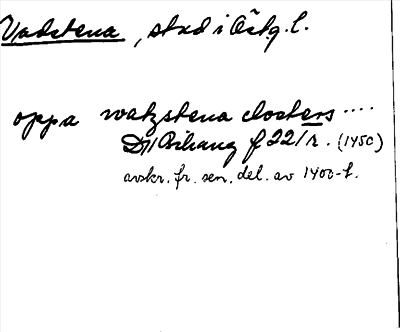 Vadstena, stad i Östg.l.
oppa watzstena closters ....
DII Bihang f 221 r. (1450)
avskr. fr. sen. del. av 1400-t.